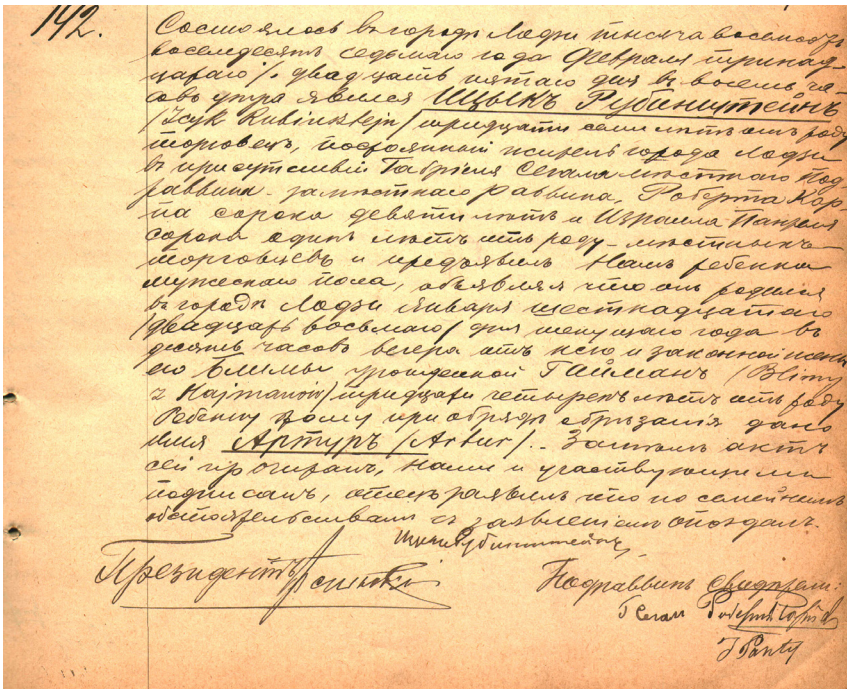 142.
Состоялось въ городѣ Лодзи тысяча восемьсотъ
восемдесятъ седьмаго года Февраля тринад-
цатаго /. двадцать пятаго дня въ восемь ча-
совъ утра явился Ицыкъ Рубинштейнъ
/Icyk Rubinsztejn/ тридцати семи лѣтъ отъ роду
торговецъ, постоянный житель города Лодзи
въ присутствіи Габріеля Сегала мѣстнаго Под-
раввина - замѣстнаго раввина, Роберта Кор-
сорока девяти лѣтъ и Израиля
сорока одинъ лѣтъ отъ роду - мѣстныхъ
торговцевъ и предъявилъ Намъ ребенка
мужескаго пола, объявляя что онъ родился
въ городѣ Лодзи Января шестнадцатаго
/двадцать восьмаго/ дня текущаго года въ
десять часовъ вечера отъ него и законной жены
его Блимы урожденной Гайманъ /Blimy
z Hajmanów/ тридцати четырехъ лѣтъ отъ роду
Ребенку этому при обрядѣ обрѣзанія дано
имя Артуръ /Artur/. - Затѣмъ актъ
сей прочитанъ, Нами и участвующими
подписанъ, отецъ заявилъ что по семейнымъ
обстоятельствамъ съ заявленіемъ опоздалъ.
Рубинштейнъ
Президентъ
Подраввинъ Свидѣтели:
Сегал